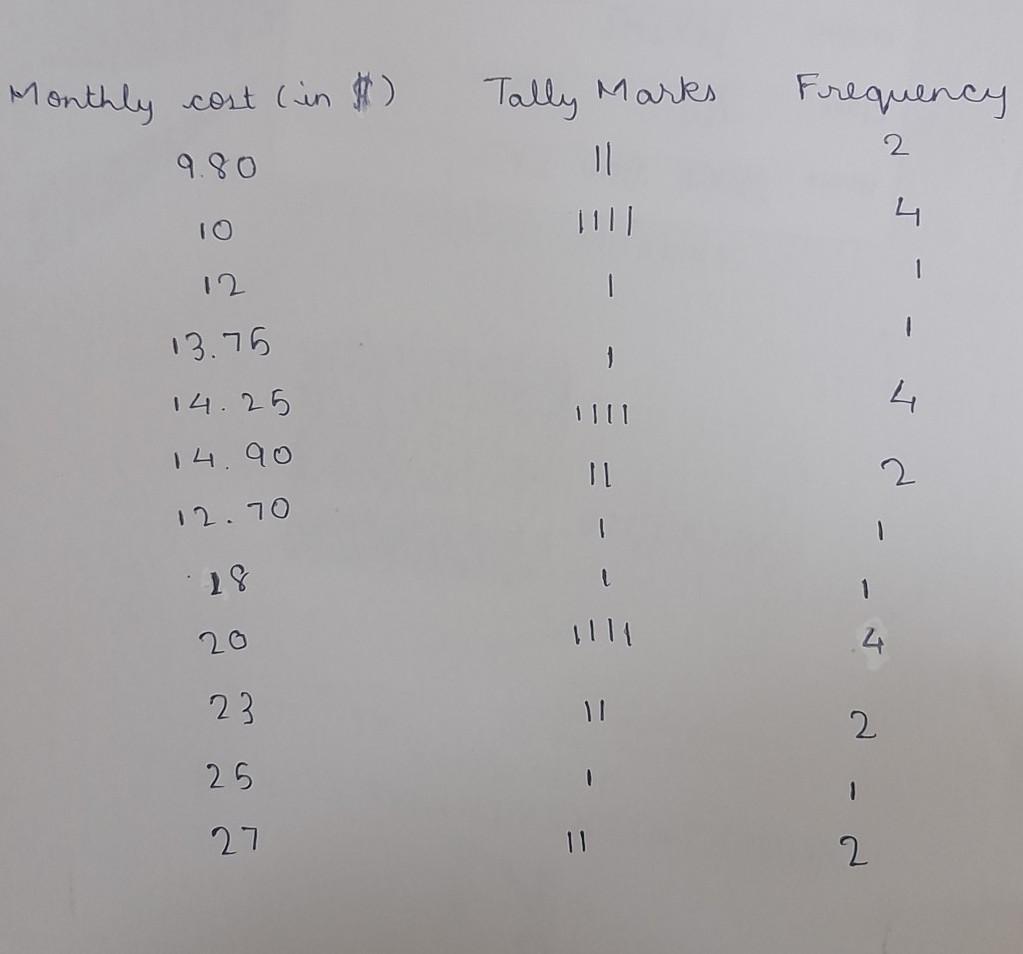 Monthly cost (in $) Tally Marks Frequency
9.80 || 2
10 |||| 4
12 | 1
13.75 | 1
14.25 |||| 4
14.90 || 2
12.70 | 1
18 | 1
20 |||| 4
23 || 2
25 | 1
27 || 2